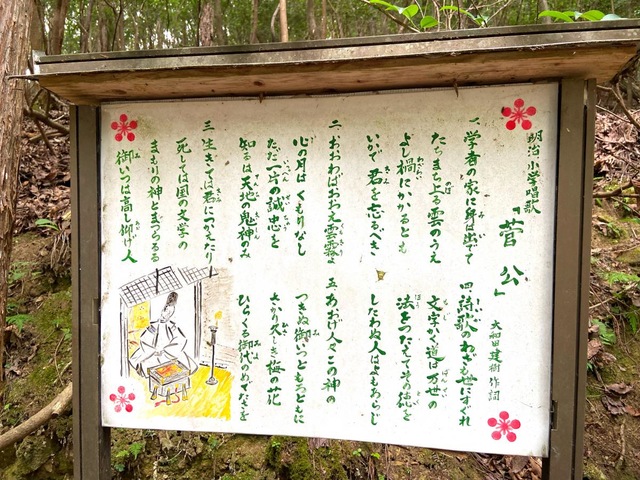 明治 小学唱歌
「菅公」
大和田建樹 作詞
一、学者の家に身は出でて
たちまち上る雲のうえ
よし禍にかかるとも
いかで君を忘るべき
二、おおわばおおえ雲霧よ
心の月はくもりなし
ただ一片の誠忠を
知るは天地の鬼神のみ
三、生きては君につかえたり
死しては国の文学の
まもりの神とまつらるる
御いつは高し仰げ人
四、詩歌のわざも世にすぐれ
文字かく道は万世の
法をつたえてその徳を
したわぬ人はよもあらじ
五、あおげ人びとこの神の
つきぬ御いつともろともに
さかり久しき梅の花
ひらくる御代のめでたさを